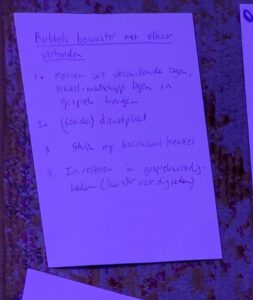 Bubbels bewuster met elkaar
verbinden
1. Mensen uit verschillende lagen,
sociaal-maatschapp lagen in
gesprek brengen
2. (sociale) dienstplicht
3 op basisschool
4. Investeren in gespreksvaardig-
heden (luistervaardigheden)